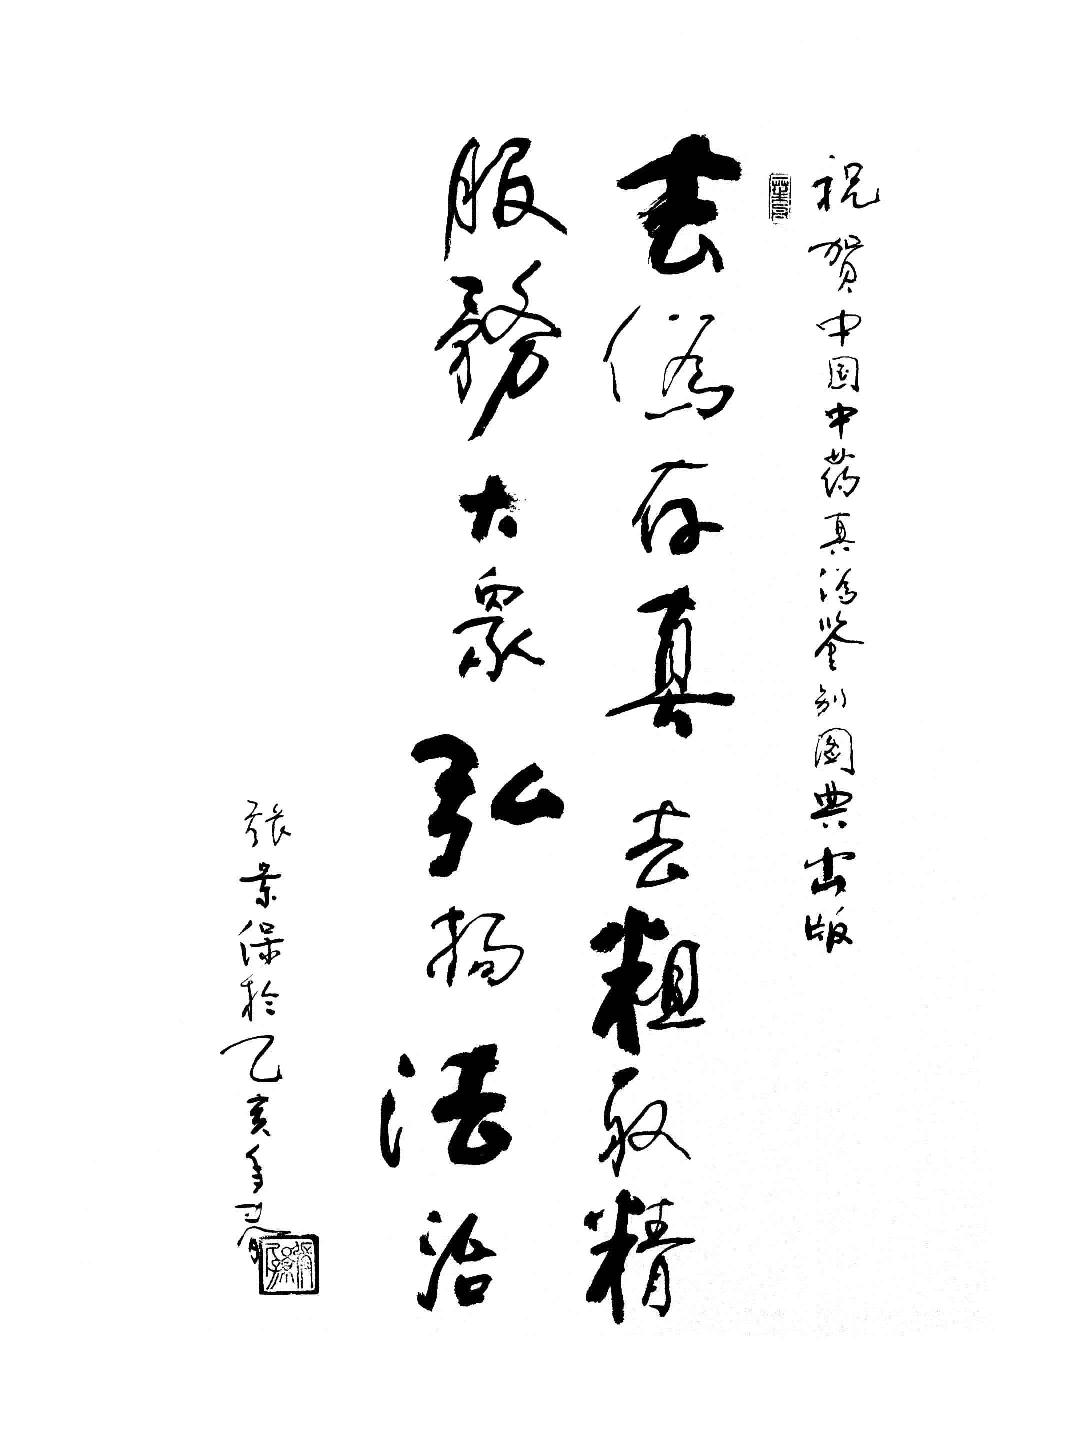 祝贺中国中药真伪鉴别图典出版
去偽存真去粗取精
服務大眾弘揚法治
張景保於乙亥年春